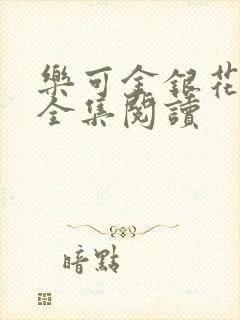 樂可金銀花
全集閱讀
暗點